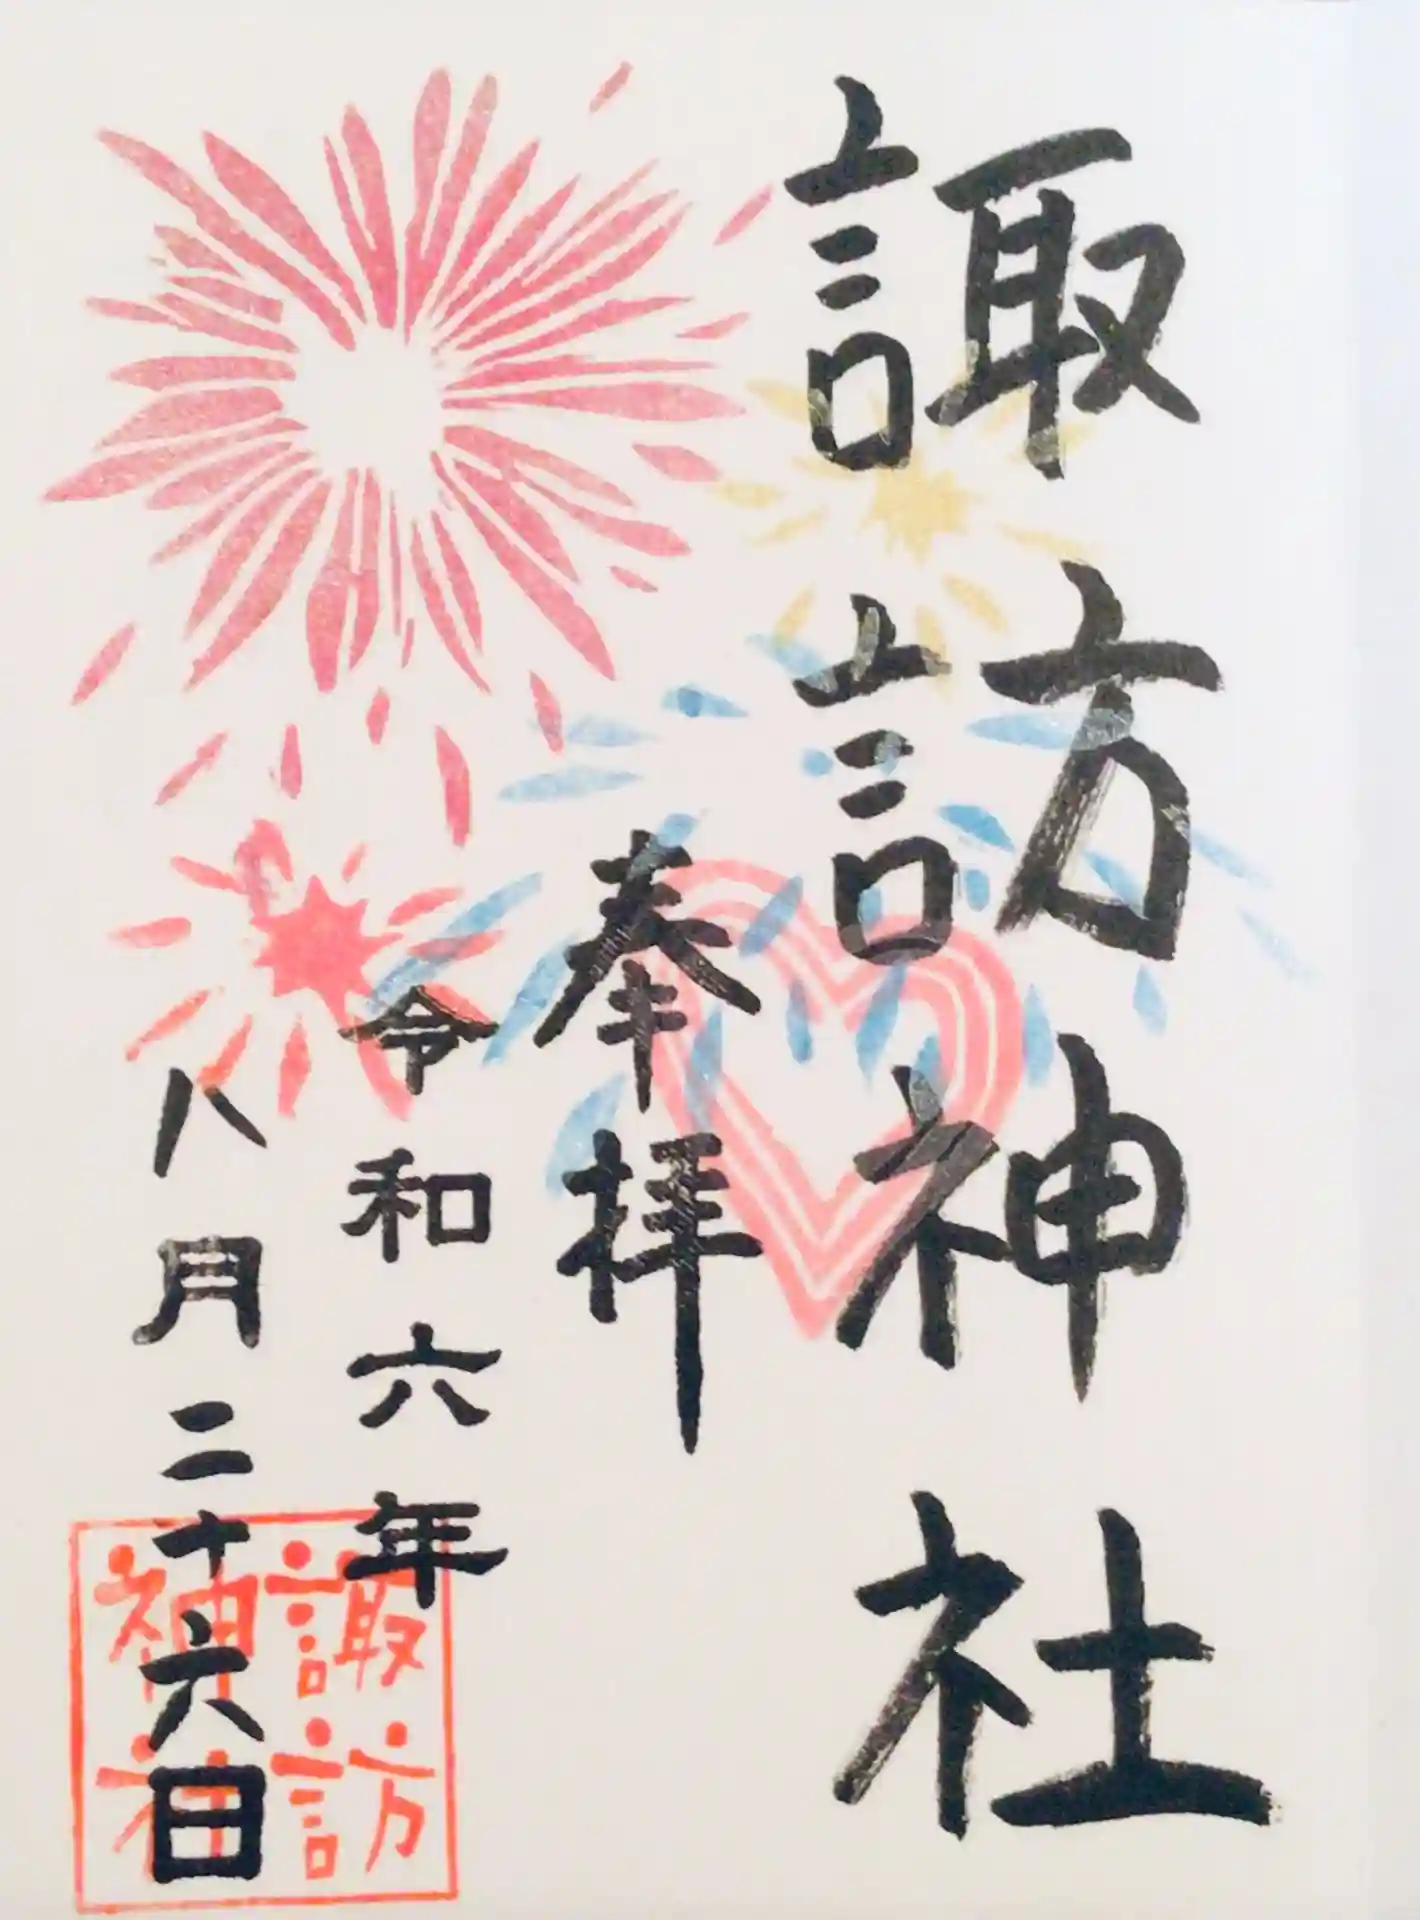 諏訪神社
奉拝
令和六年
八月二十六日
諏訪
神社